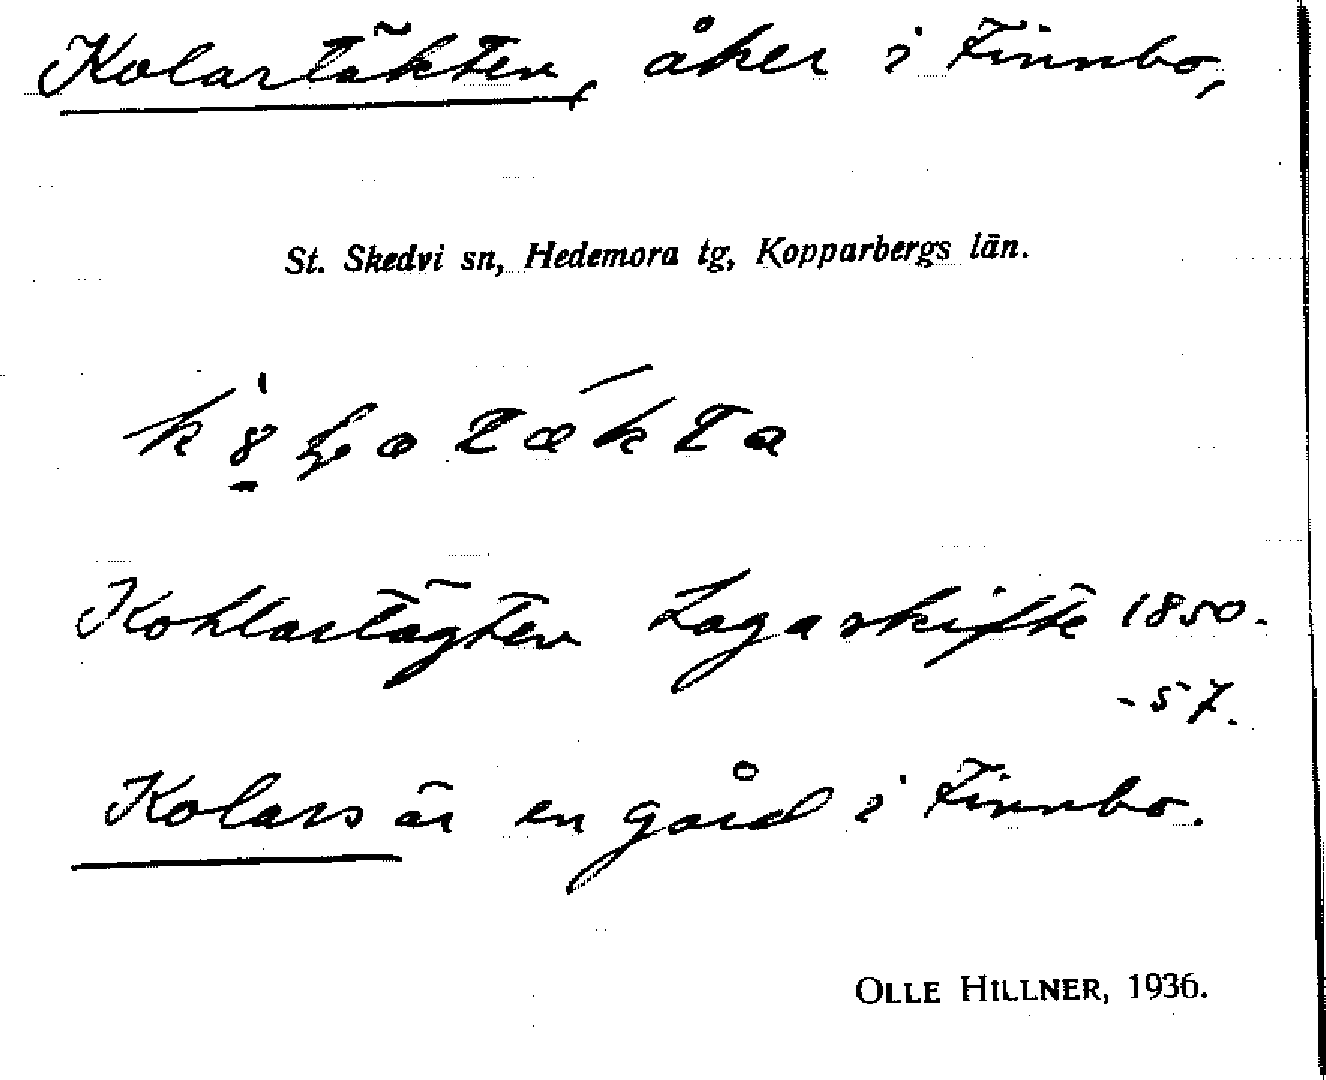 Kolartäkten, åker i Finnbo,
St. Skedvi sn, Hedemora tg, Kopparbergs län.
Kohlartägten Laga skifte 1850-
-57.
Kolars är en gård i Finnbo.
OLLE HILLNER, 1936.